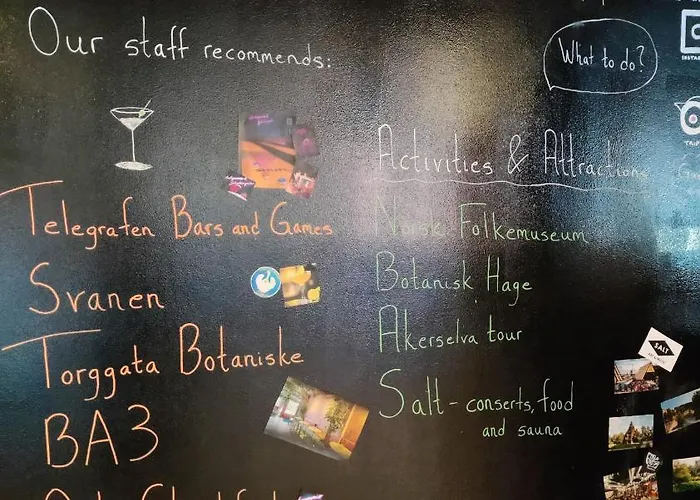 Our staff recommends:
Telegrafen Bars and Games
Svanen
Torggata Botaniske
BA3
What to do?
Activities & Attractions
Norsk Folkemuseum
Botanisk Hage
Akerselva tour
Salt - conserts, food
and sauna
SALT
INSTA
TRIP